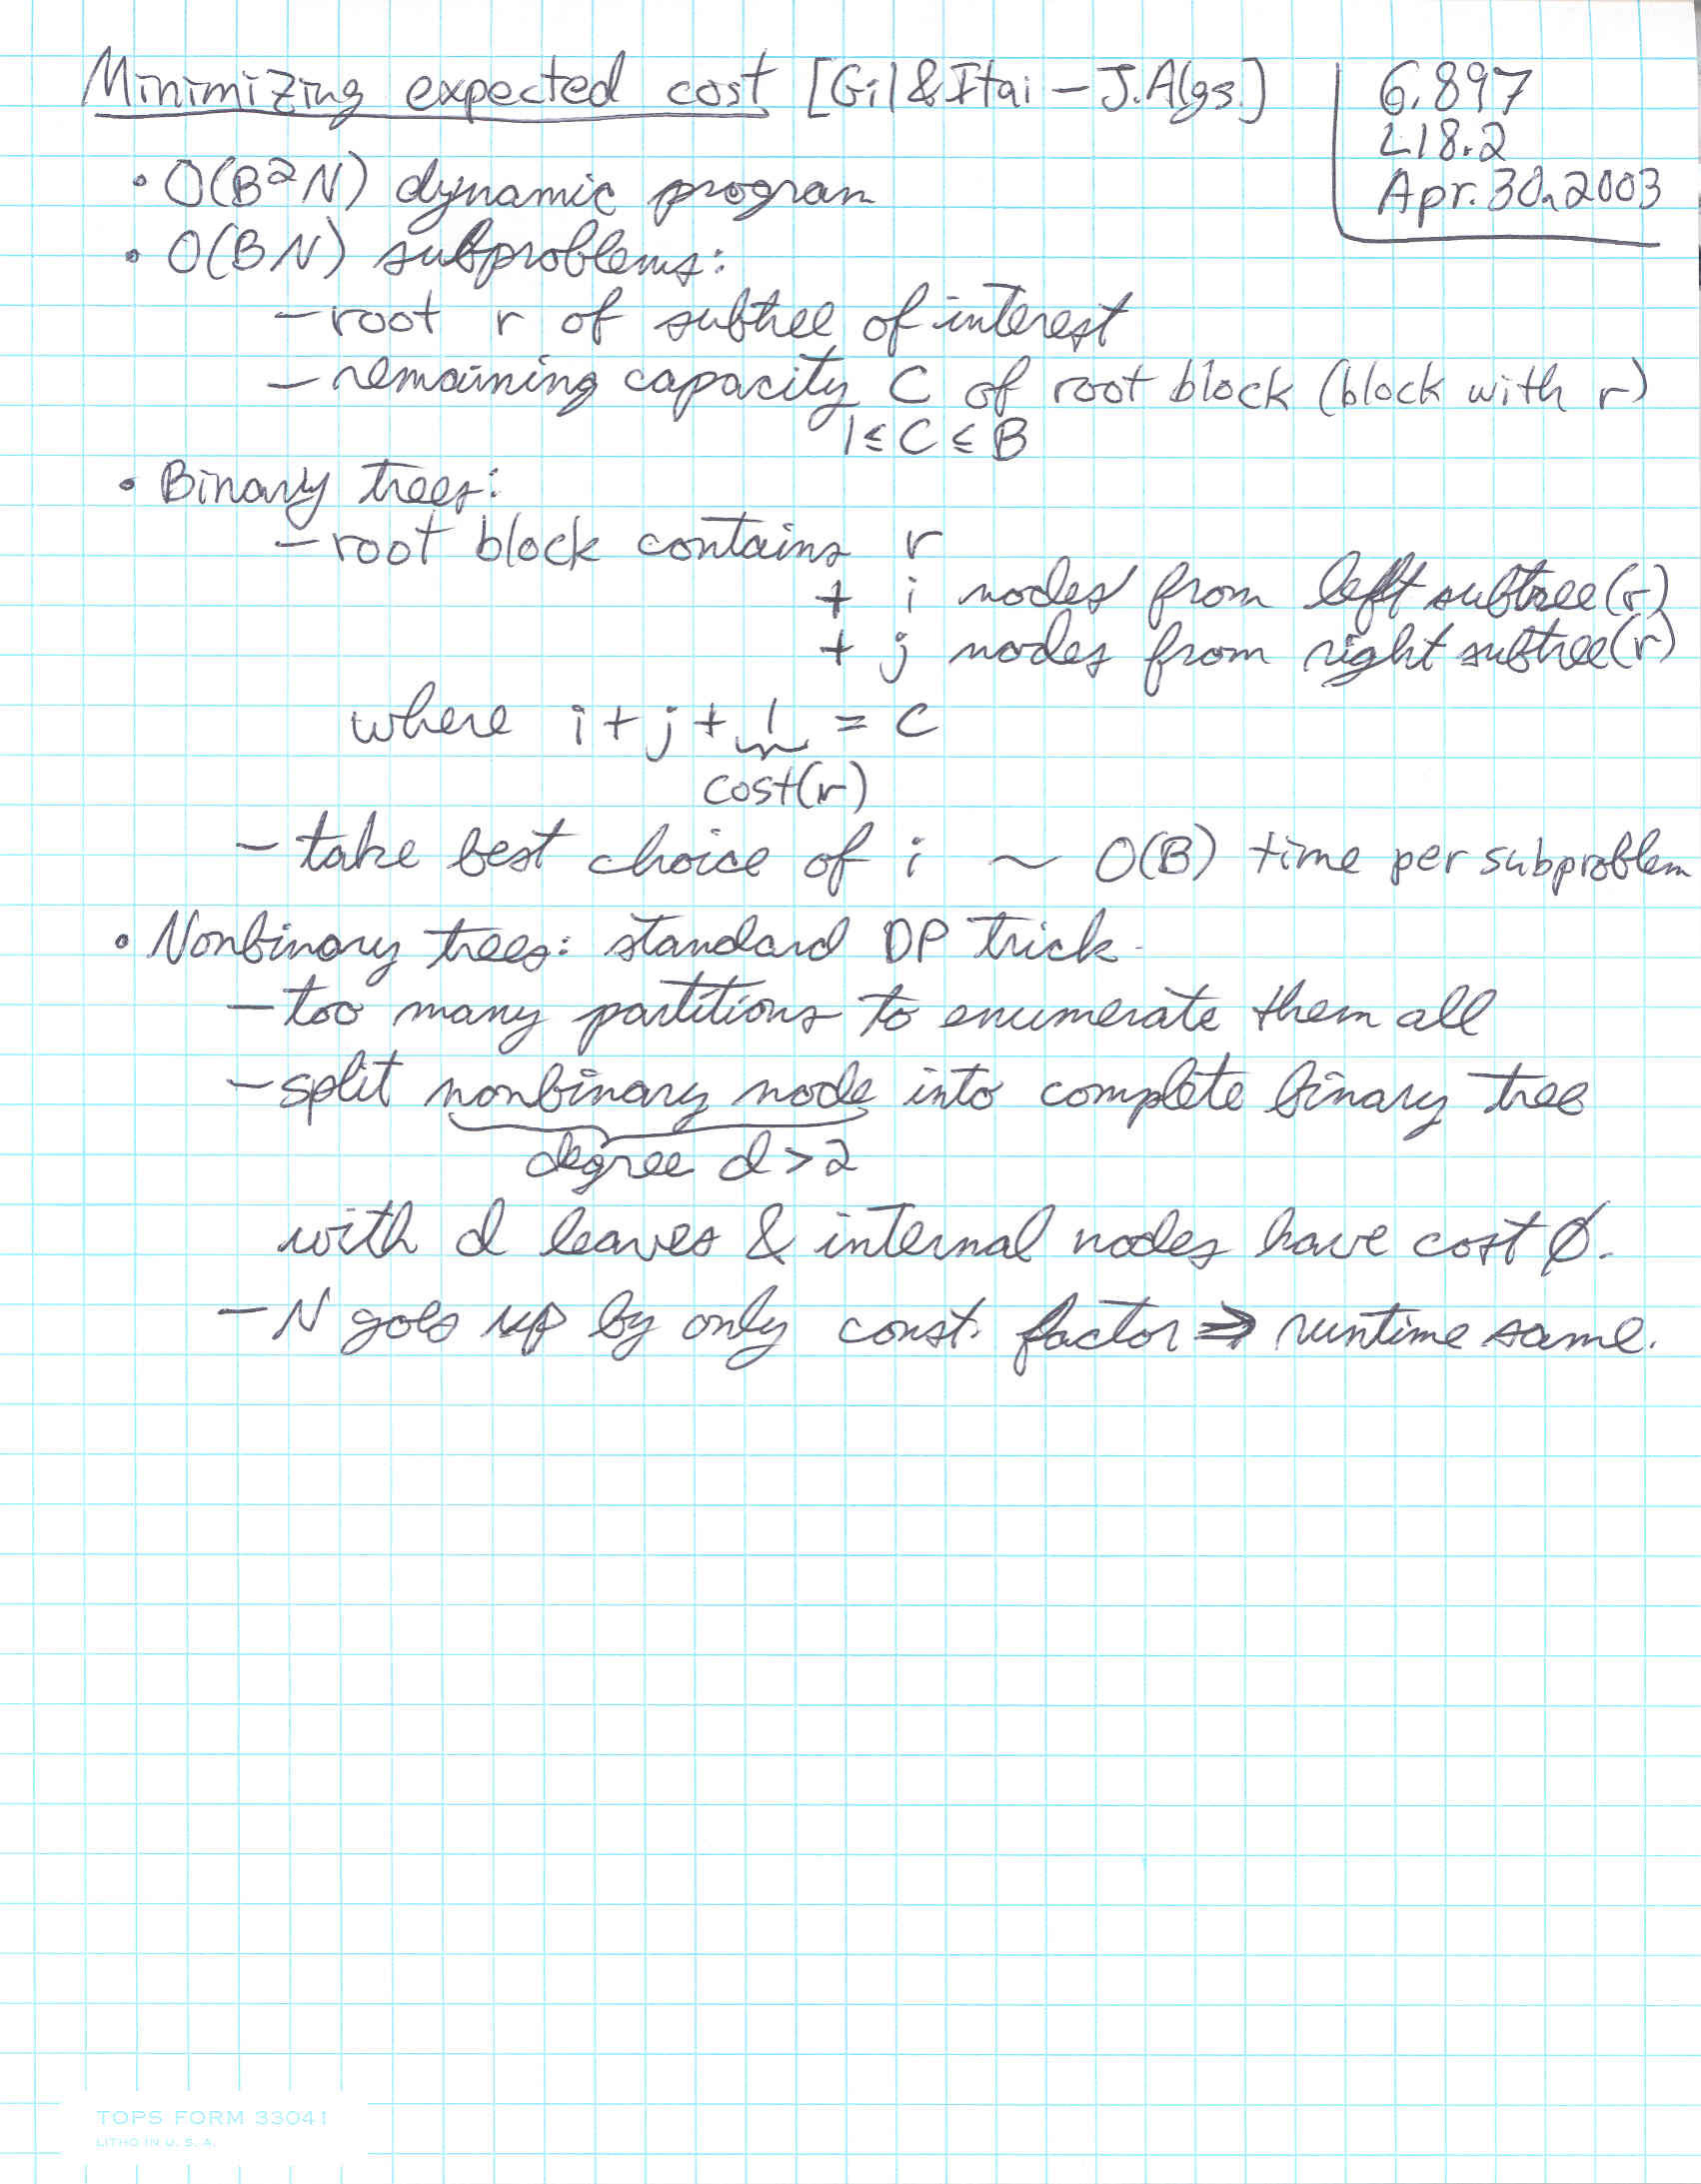 Minimizing expected cost [Gil & Itai – J. Algs.]
6.897
L18.2
Apr. 30, 2003
• O(B²N) dynamic program
• O(BN) subproblems:
– root r of subtree of interest
– remaining capacity C of root block (block with r)
1 ≤ C ≤ B
• Binary trees:
– root block contains r
+ i nodes from left subtree(r)
+ j nodes from right subtree(r)
where i + j + 1 = C
cost(r)
– take best choice of i ~ O(B) time per subproblem
• Nonbinary trees: standard DP trick
– too many partitions to enumerate them all
– split nonbinary node into complete binary tree
degree d > 2
with d leaves & internal nodes have cost Ø.
– N goes up by only const. factor ⇒ runtime same.
TOPS FORM 33041
LITHO IN U. S. A.